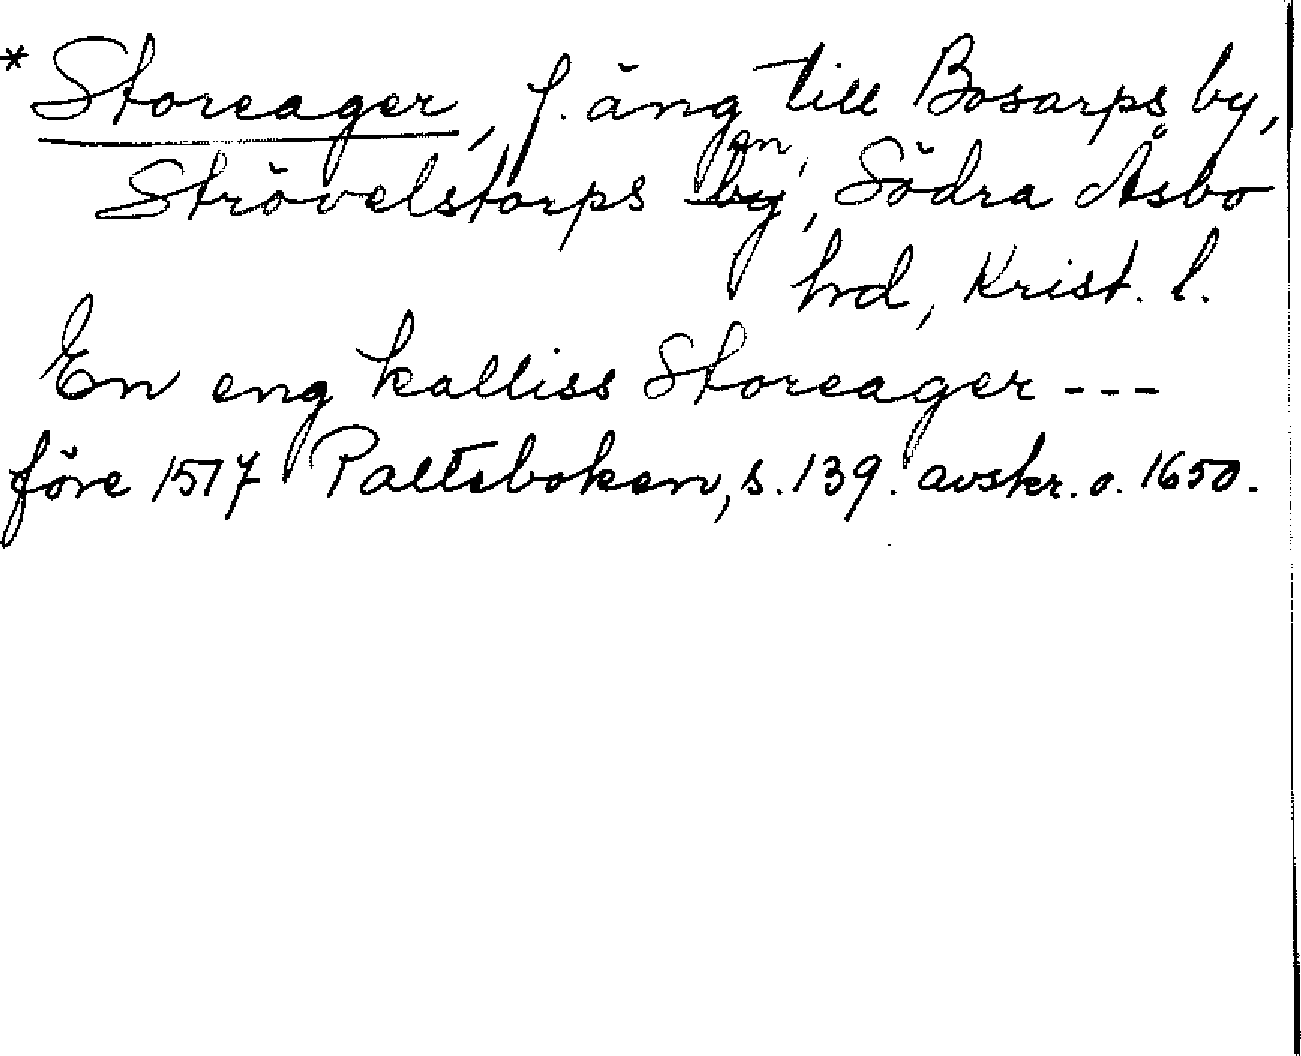 * Storeager, f. äng till Bosarps by,
Strövelstorps sn, Södra Åsbo
hrd, Krist. l.
En eng kalliss Storeager ---
före 1517 Palteboken, s. 139. avskr. o. 1650.